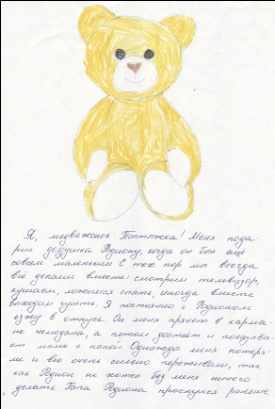 Я, медвежонок Топтотжка! Меня пода-
рил дедушка Родиону, когда он был ещё
совсем маленьким. С тех пор мы всегда
всё делаем вместе: смотрим телевизор,
кушаем, ложимся спать, иногда вместе
выходим гулять. Я постоянно с Родионом
езжу в отпуск. Он меня прячет в карма-
не чемодана, а потом достаёт и
ет меня с папой. Однажды меня потеря-
ли и все очень сильно переживали, так
как Родион не хотел без меня ничего
делать. Папа Родиона проснулся раньше